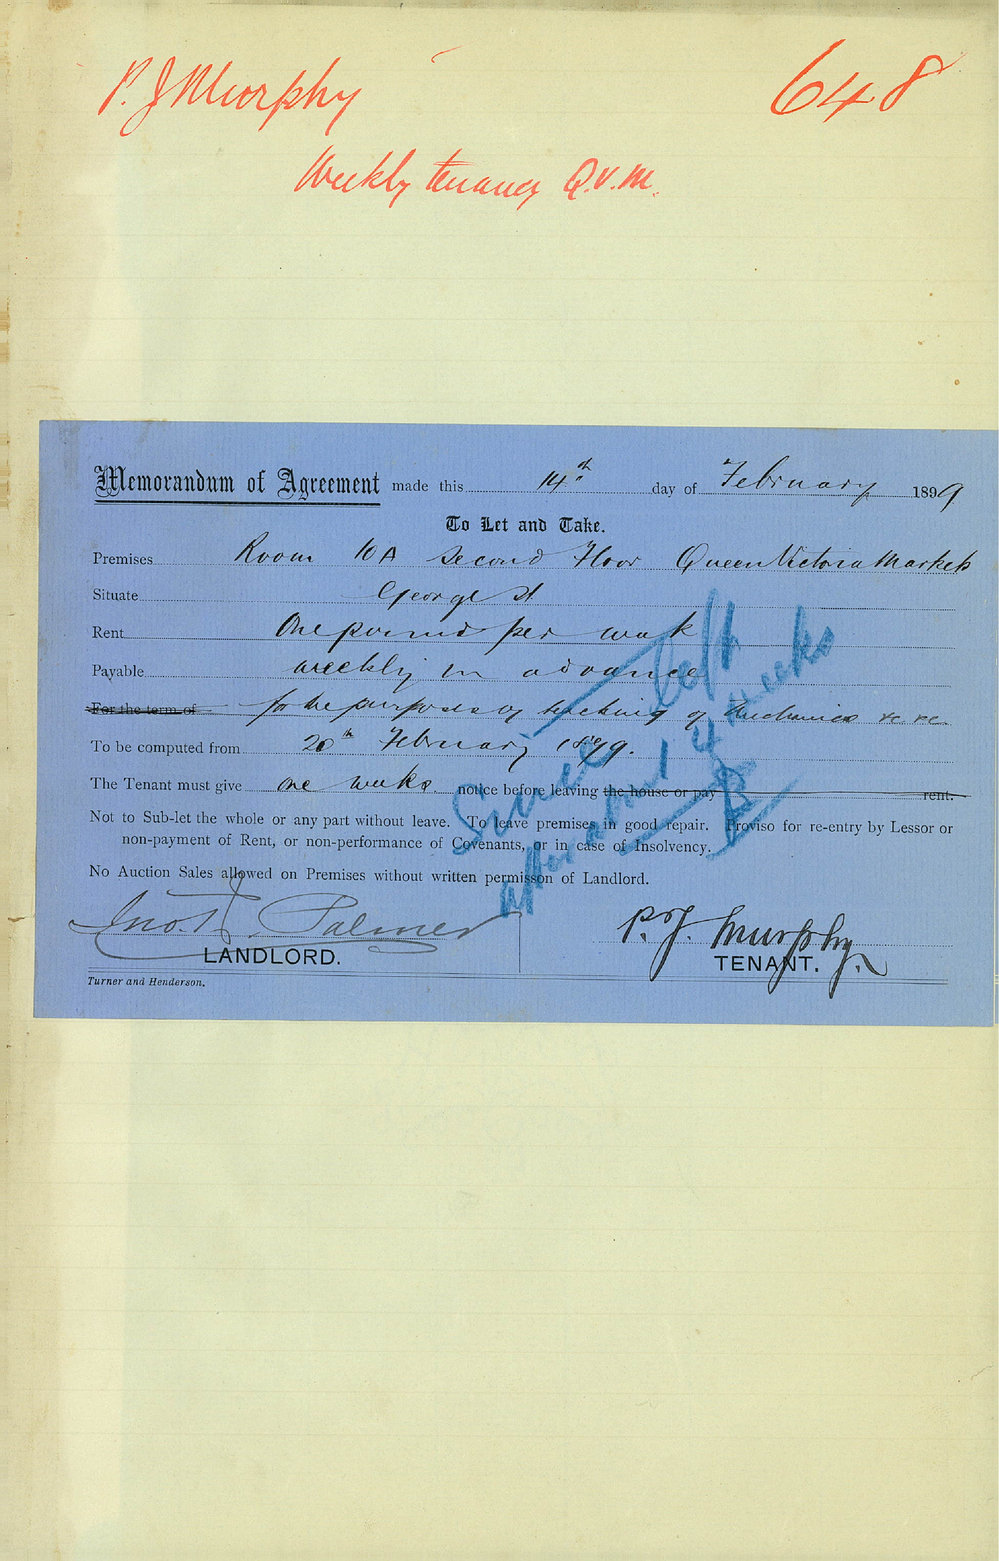 P. J Murphy 648
Weekly tenancy Q.V.M.
Memorandum of Agreement made this 14th day of February 1899
To Let and Take.
Premises Room 10A Second Floor Queen Victoria Markets
Situate George St
Rent One pound per week
Payable weekly in advance
For the term of for the purposes of teaching of mechanics &c &c.
To be computed from 20th February 1899.
The Tenant must give one weeks notice before leaving the house or pay rent.
Not to Sub-let the whole or any part without leave. To leave premises in good repair. Proviso for re-entry by Lessor or
non-payment of Rent, or non-performance of Covenants, or in case of Insolvency.
No Auction Sales allowed on Premises without written permisson of Landlord.
Since left
after about 4 weeks
Jno. Palmer P. J. Murphy.
LANDLORD. TENANT.
Turner and Henderson.